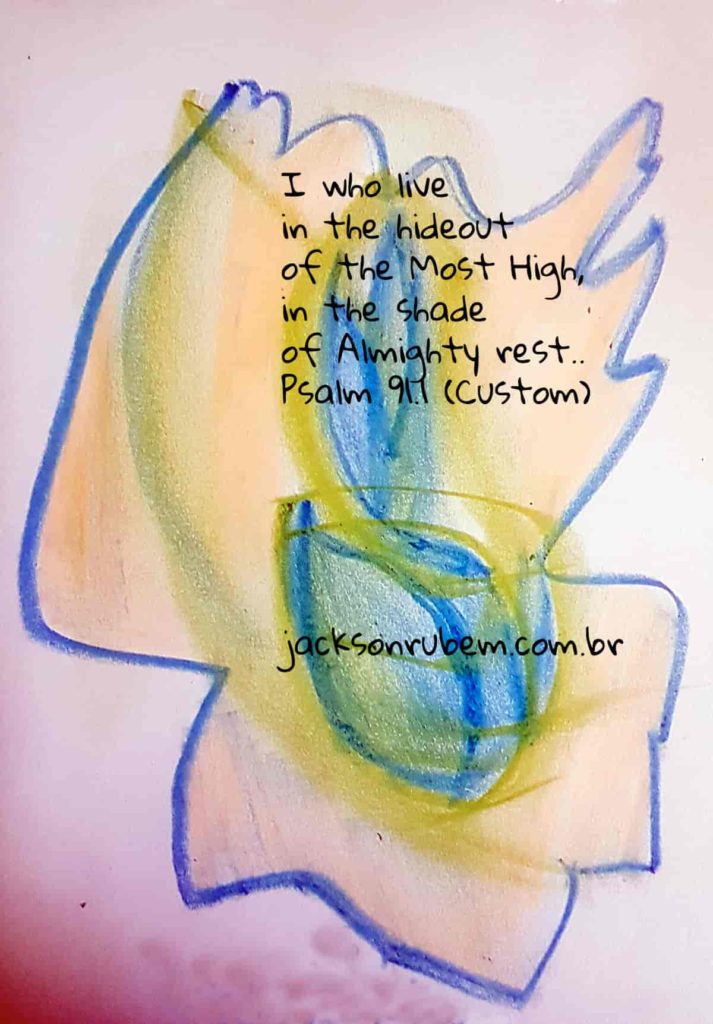 I who live
in the hideout
of the Most High,
in the shade
of Almighty rest..
Psalm 91.1 (Custom)
jacksonrubem.com.br